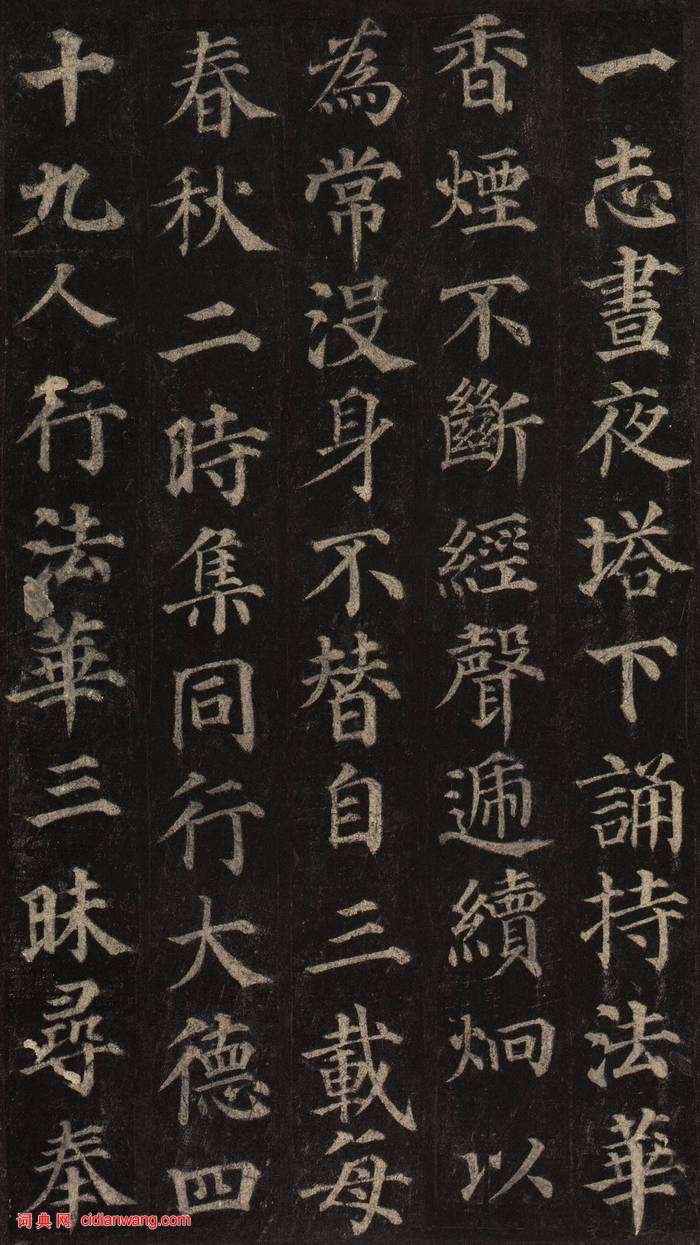 一志晝夜塔下誦持法華
香煙不斷經聲遞續炯以
為常沒身不替自三載每
春秋二時集同行大德四
十九人行法華三昧尋奉
词典网 cidianwang.com